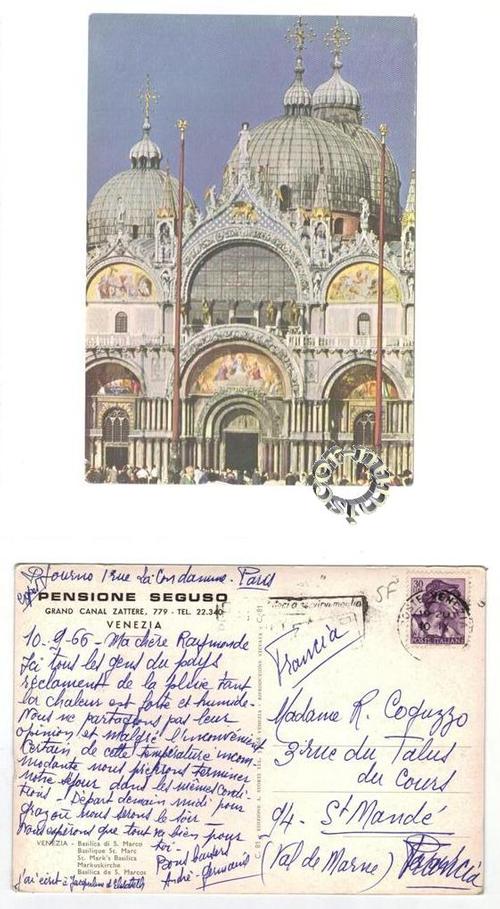 numiscor
Journo 1 rue La Condamine - Paris
PENSIONE SEGUSO
GRAND CANAL ZATTERE, 779 - TEL. 22.340
VENEZIA
10-9-66 - Ma chère Raymonde
Ici tous les gens du pays
réclament de la pluie tant
la chaleur est forte et humide.
Nous ne partageons pas leur
opinion et malgré l'inconvénient
certain de cette température incom-
modante nous préférons terminer
notre séjour dans les mêmes condi-
tions - Départ demain midi pour
nous serons le soir -
Nous espérons que tout va bien pour
toi -
VENEZIA - Basilica di S. Marco
Basilique St. Marc
St. Mark's Basilica
Markuskirche
Basilica de S. Marcos
Bons baisers
André - Germaine
J'ai écrit à Jacqueline d'
C. 81
SF
30
POSTE ITALIANE
Francia
Madame R. Coguzzo
3 rue du Talus
du Cours
94 - St Mandé
(Val de Marne) Francia